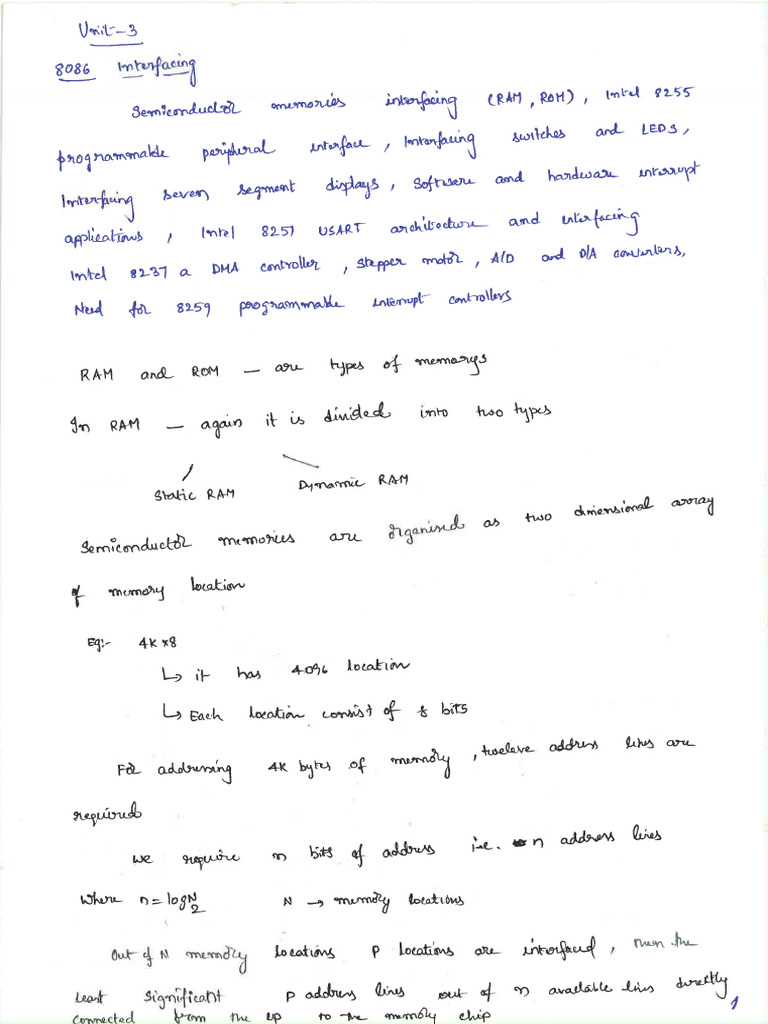 Unit-3
8086 Interfacing
Semiconductor memories interfacing (RAM, ROM), Intel 8255
programmable peripheral interface, Interfacing switches and LEDS,
Interfacing seven segment displays, Software and hardware interrupt
applications, Intel 8251 USART architecture and interfacing
Intel 8237 a DMA controller, Stepper motor, A/D and D/A converters,
Need for 8259 programmable interrupt controllers
RAM and ROM — are types of memorys
In RAM — again it is divided into two types
Static RAM Dynamic RAM
Semiconductor memories are organised as two dimensional array
of memory location
Eg:- 4K x8
↳ it has 4096 location
↳ Each location consist of 8 bits
For addressing 4K bytes of memory, tweleve address lines are
required
We require n bits of address i.e. n address lines
Where n = log N 2 N → memory locations
Out of N memory locations P locations are interfaced, then the
least significant P address lines out of n available lines directly
connected from the up to the memory chip
1